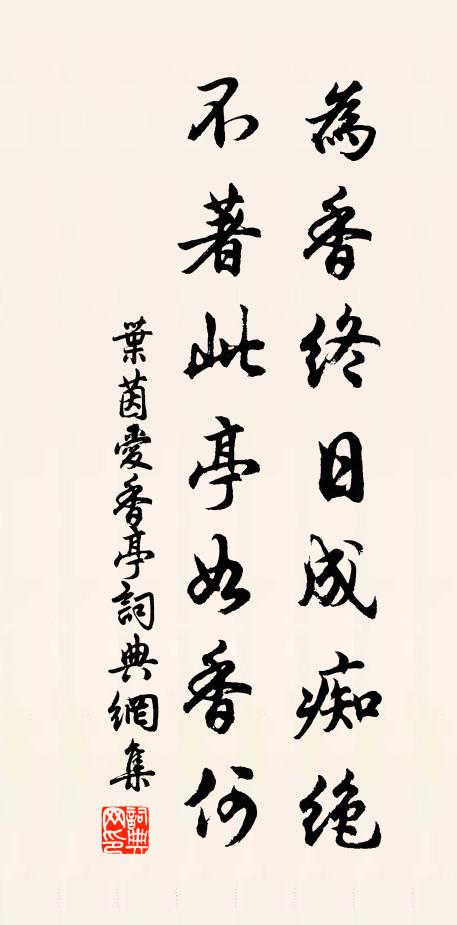 為香終日成痴絶
不著此亭如香何
葉茵愛香亭詞典網集
詞典网印